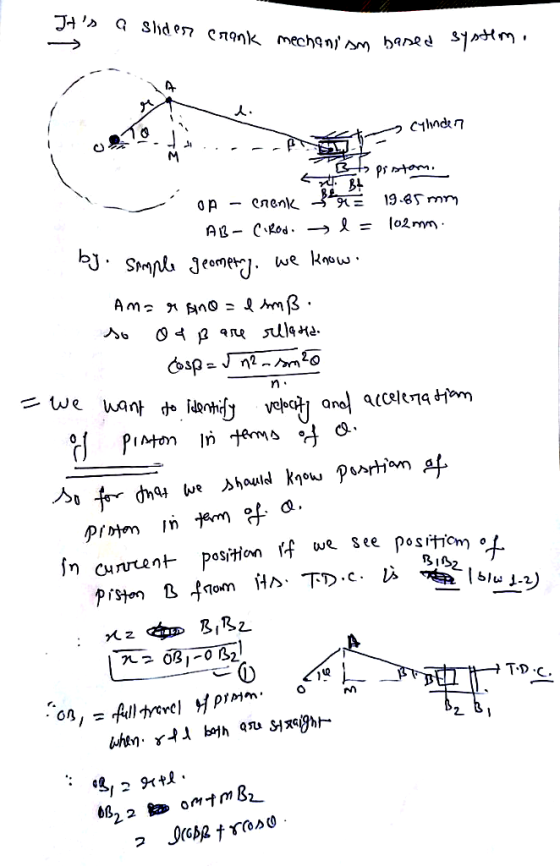 It's a slider crank mechanism based system.
A
r
l.
θ
O
M
β
cylinder
B
piston.
x
B2 B1
OA - crank → r = 19.85 mm
AB - C.Rod. → l = 102mm.
by. simple geometry. we know.
AM = r sinθ = l sinβ.
so θ & β are related.
cosβ = √n² - sin²θ
n.
= we want to identify velocity and acceleration
of piston in terms of θ.
so for that we should know position of
piston in term of. θ.
in current position if we see position of
piston B from its. T.D.C. is B1B2 (b/w 1-2)
∴ x = B1B2
x = OB1 - OB2
①
A
T.D.C.
O
θ
M
β
B
B2 B1
∵ OB1 = full travel of piston.
when. r & l both are straight
∵ OB1 = r+l.
OB2 = OM + MB2
= lcosβ + rcosθ.